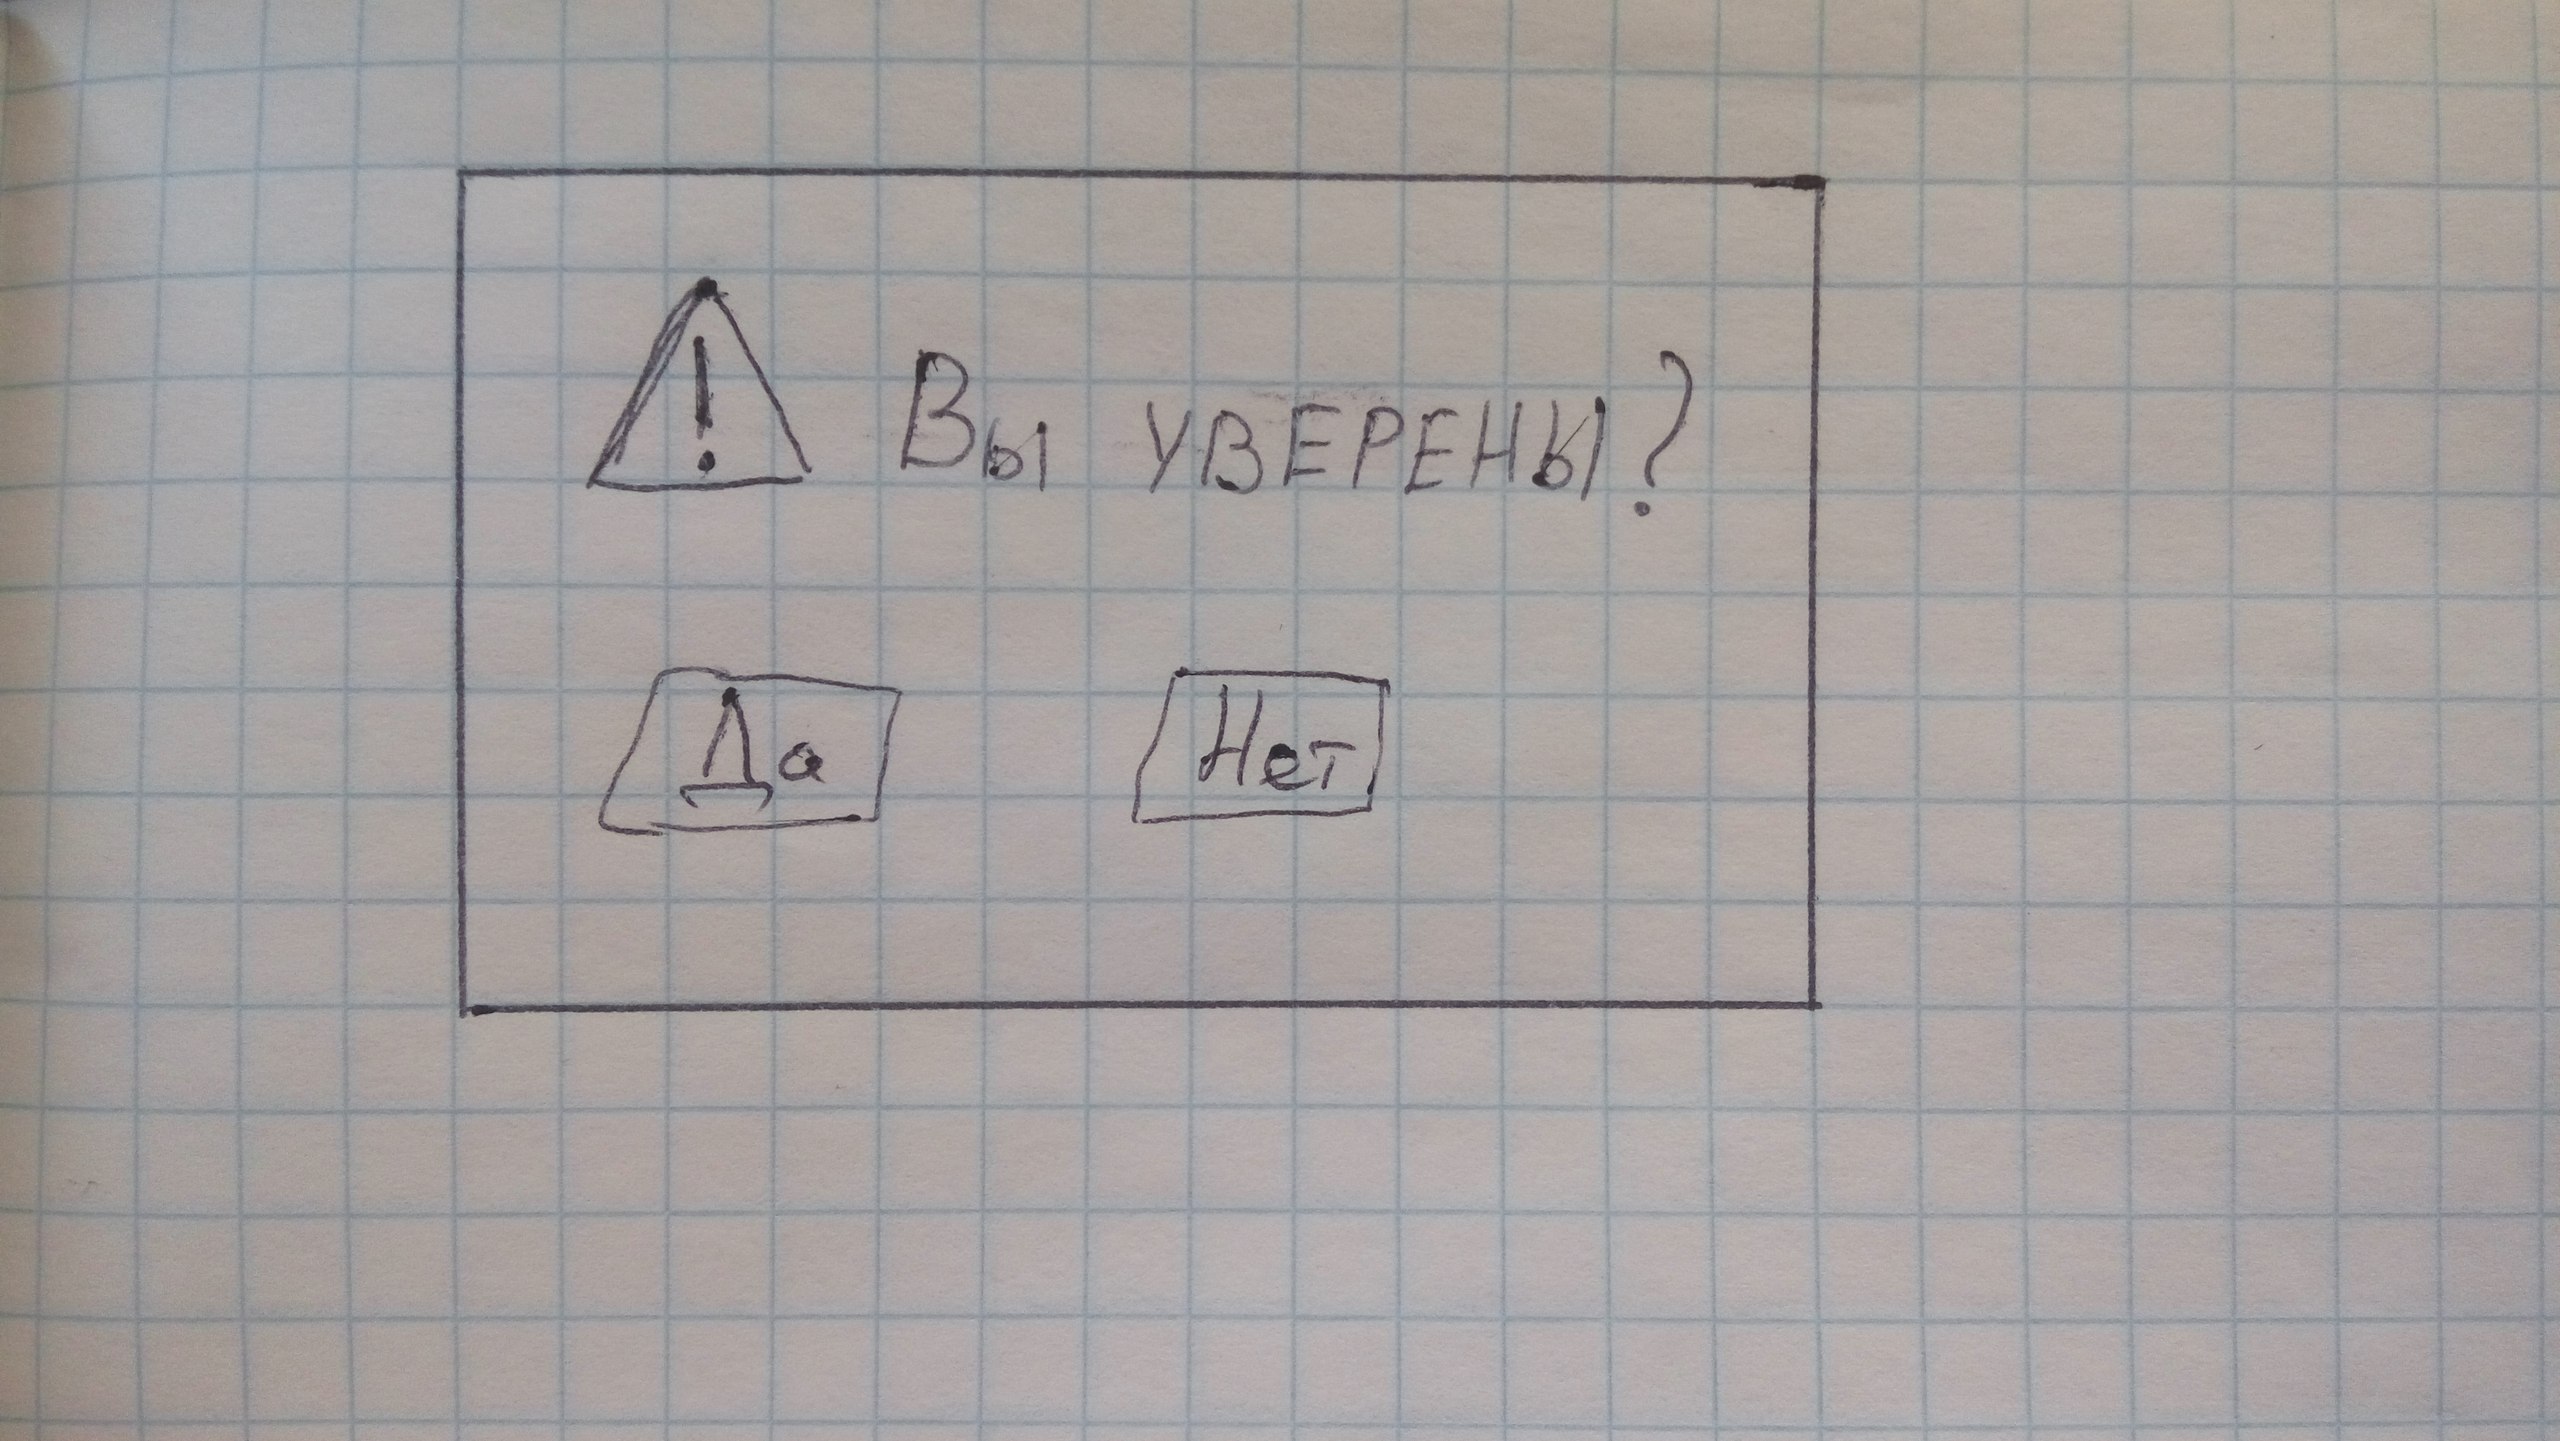 ! Вы уверены?
Да Нет